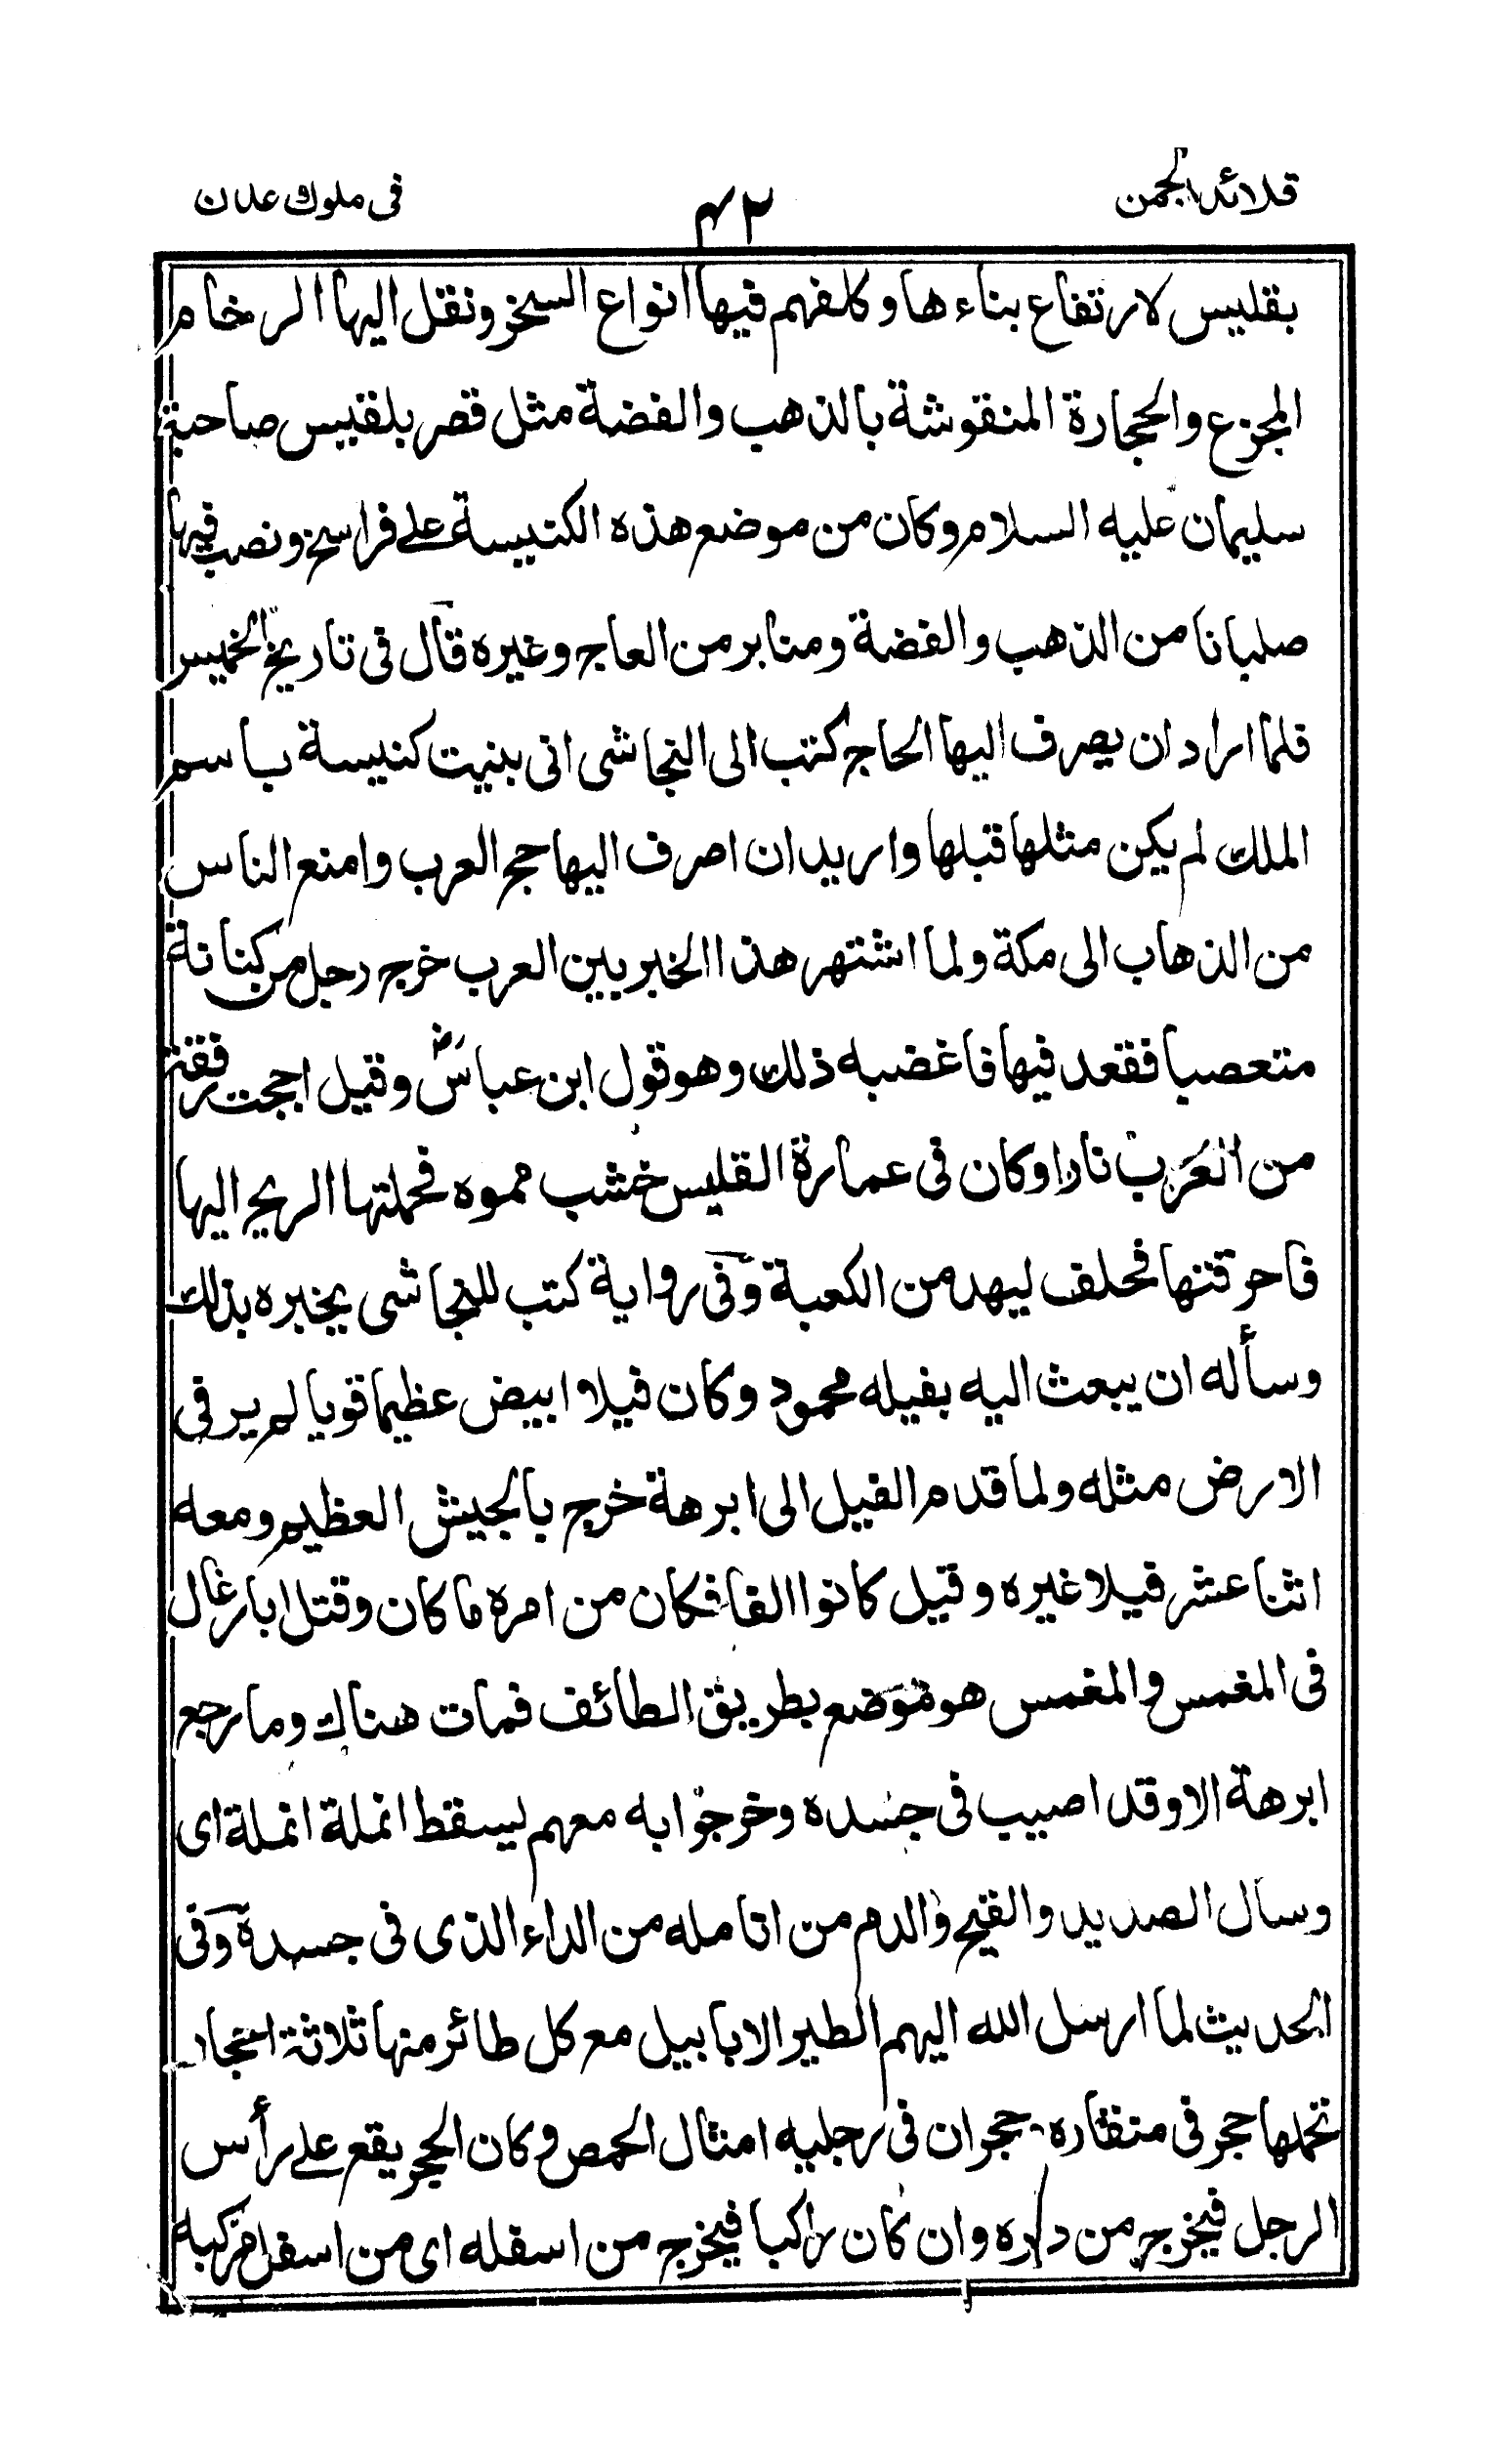 قلائد الجمن
٤٢
فى ملوك عدان
بقليس لارتفاع بناءها وكلفهم فيها انواع السخر ونقل اليها الرخام
المجزع والحجارة المنقوشة بالذهب والفضة مثل قصر بلقيس صاحبة
سليمان عليه السلام وكان من موضع هذه الكنيسة على فراسخ ونصب فيها
صلبانا من الذهب والفضة ومنابر من العاج وغيره قال فى تاريخ الخميس
فلما اراد ان يصرف اليها الحاج كتب الى النجاشى انى بنيت كنيسة باسم
الملك لم يكن مثلها قبلها واريد ان اصرف اليها حج العرب وامنع الناس
من الذهاب الى مكة ولما اشتهر هذا الخبر بين العرب خرج رجل من كنانة
متعصبا فقعد فيها فاغضبه ذلك وهو قول ابن عباسؓ وقيل اججت رفقة
من العرب نارا وكان فى عمارة القليس خشب مموه فحملتها الريح اليها
فاحرقتها فحلف ليهدمن الكعبة وفى رواية كتب للنجاشى يخبره بذلك
وسأله ان يبعث اليه بفيله محمود وكان فيلا ابيض عظيما قويا لم ير فى
الارض مثله ولما قدم الفيل الى ابرهة خرج بالجيش العظيم ومعه
اثنا عشر فيلا غيره وقيل كانوا الفا فكان من امره ما كان وقتل ابا رغال
فى المغمس والمغمس هو موضع بطريق الطائف فمات هناك وما رجع
ابرهة الا وقد اصيب فى جسده وخرجوا به معهم ليسقط انملة انملة اى
وسال الصديد والقيح والدم من انامله من الداء الذى فى جسده وفى
الحديث لما ارسل الله اليهم الطير الابابيل مع كل طائر منها ثلاثة احجار
تحملها حجر فى منقاره حجران فى رجليه امثال الحمص وكان الحجر يقع على رأس
الرجل فيخرج من دبره وان كان راكبا فيخرج من اسفله اى من اسفل مركبه